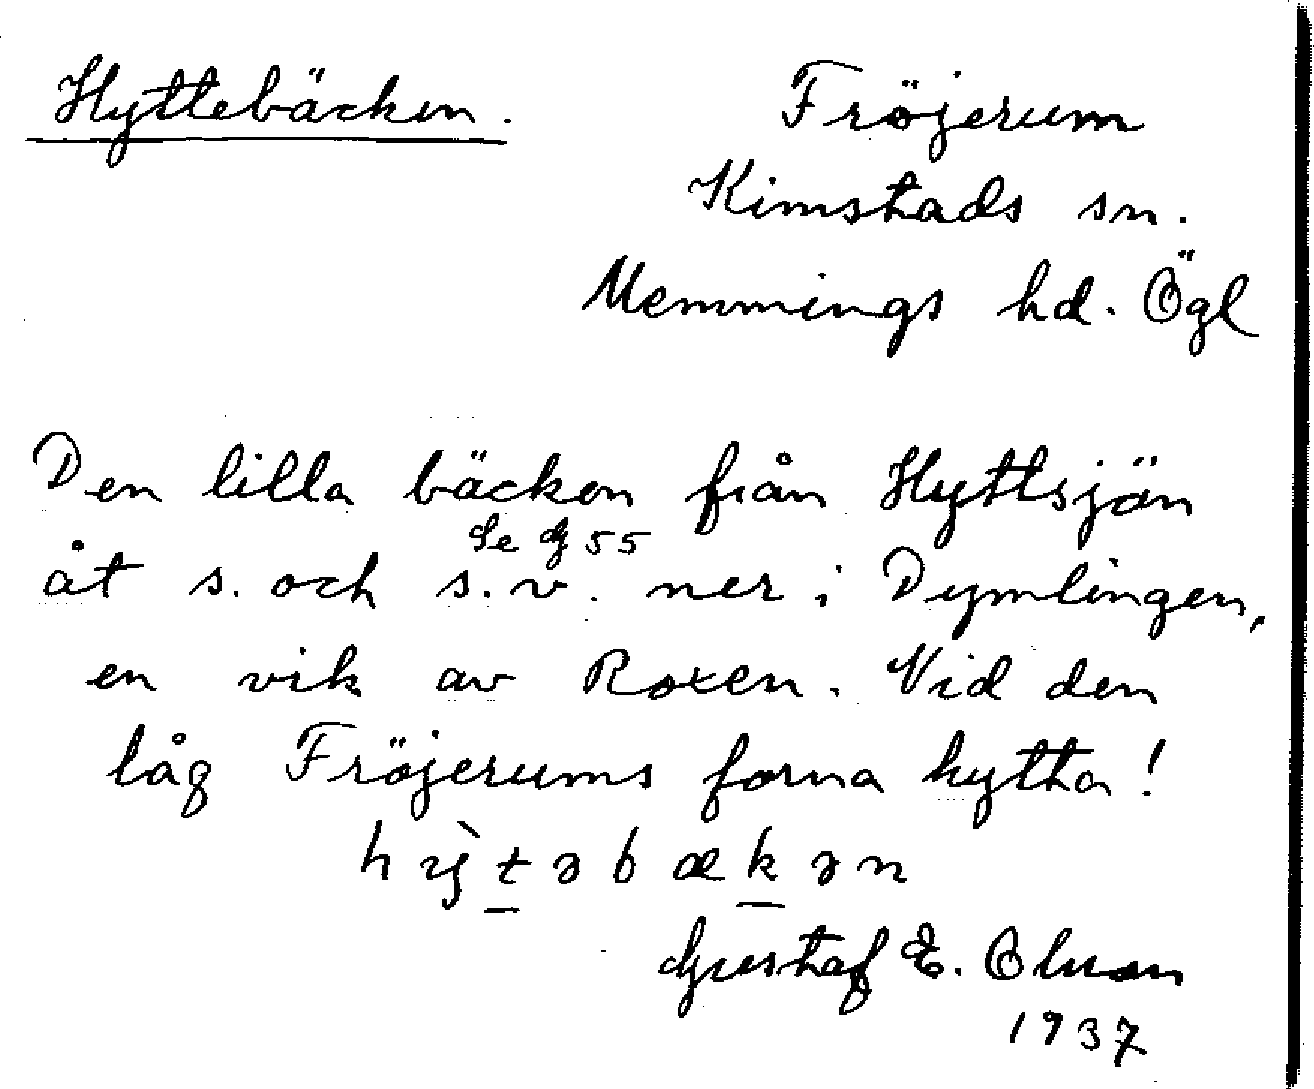 Hyttebäcken.
Fröjerum
Kimstads sn.
Memmings hd. Ögl
Den lilla bäcken från Hyttsjön
Se G 55
åt s. och s.v. ner i Dymlingen,
en vik av Roxen. Vid den
låg Fröjerums forna hytta!
hỳ̢t̲əbæk̲ən
Gustaf E. Olsson
1937